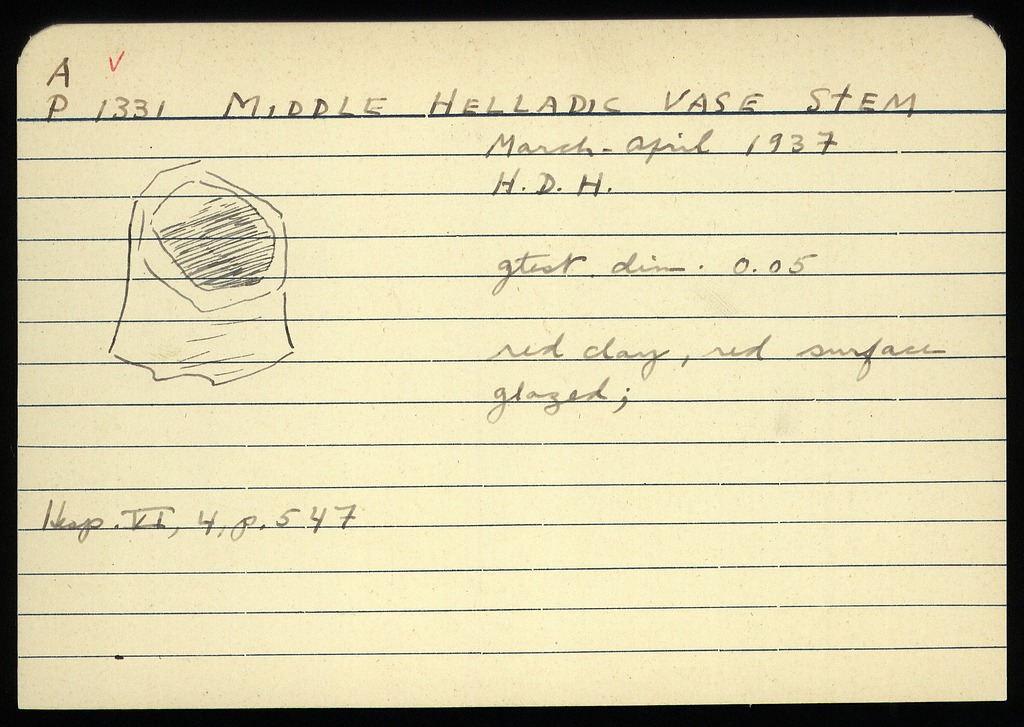 A ✓
P 1331 MIDDLE HELLADIC VASE STEM
March-April 1937
H. D. H.
gtest. dim. 0.05
red clay, red surface
glazed;
Hesp. VI, 4, p. 547